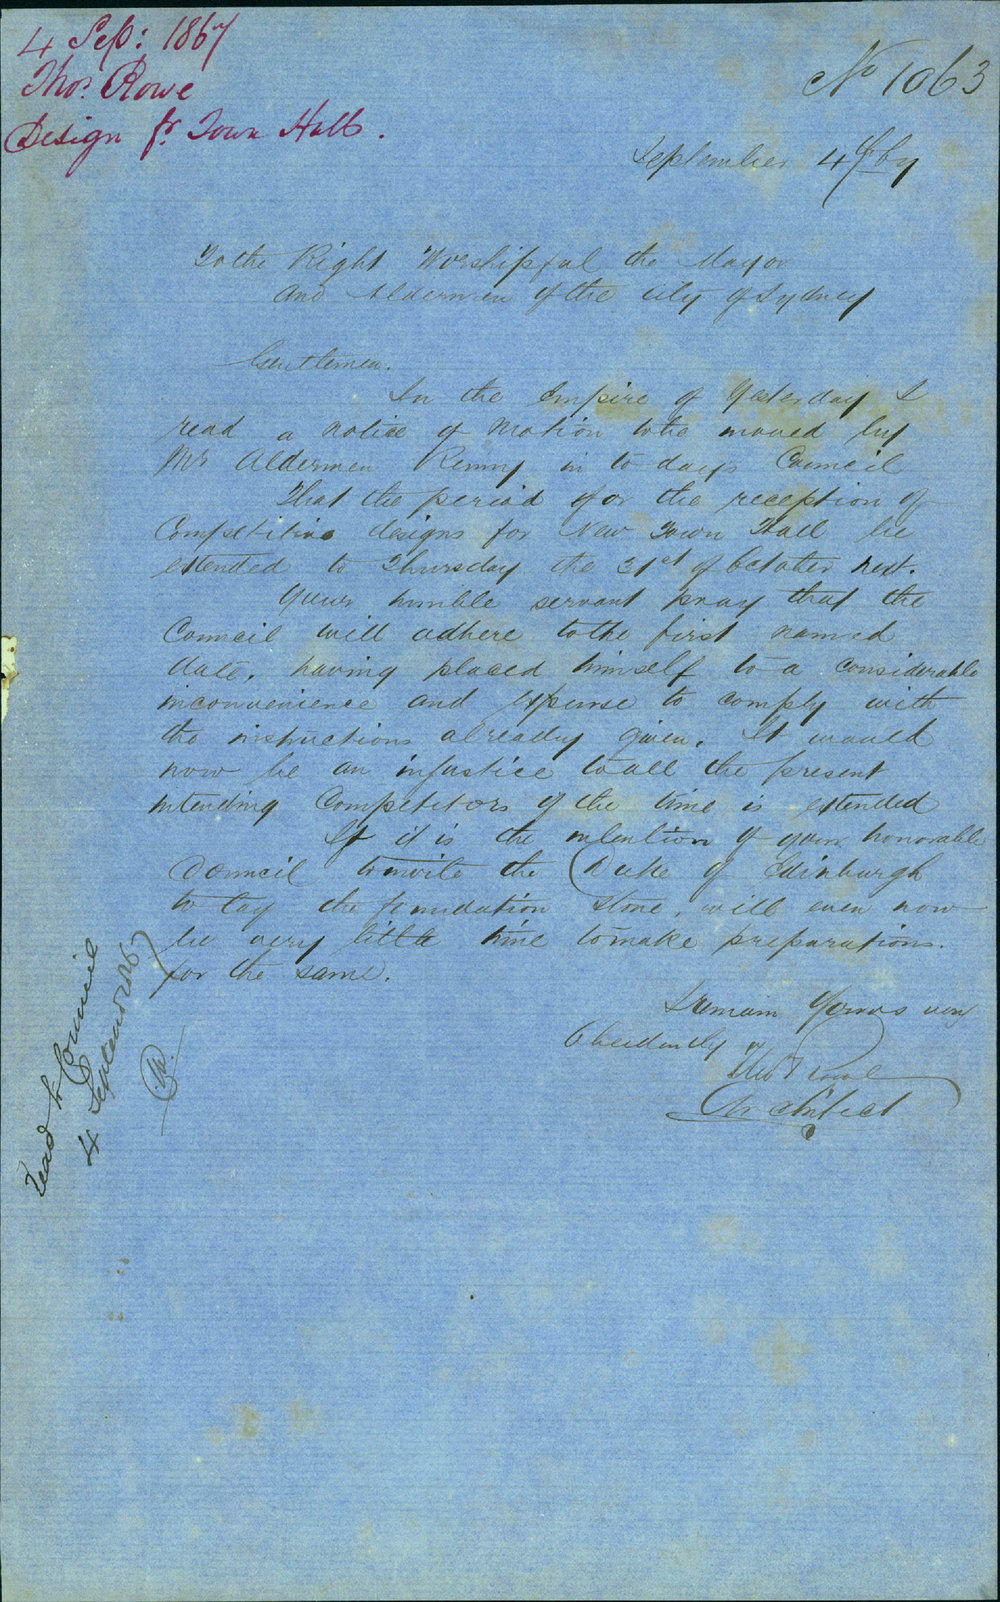 4 Sep: 1867
Thos. Rowe
Design fr. Town Hall.
No 1063
September 4th 67
To the Right Worshipful the Mayor
and Aldermen of the City of Sydney
Gentlemen.
In the Empire of Yesterday I
read a notice of Motion to be moved by
Mr Aldermen Renny in to days Council
That the period for the reception of
Competitive designs for New Town Hall be
extended to Thursday the 31st of October next.
Your humble servant pray that the
Council will adhere to the first named
date, having placed himself to a considerable
inconvenience and expense to comply with
the instructions already given. It would
now be an injustice to all the present
intending Competitors if the time is extended
If it is the intention of your honorable
Council to invite the Duke of Edinburgh
to lay the foundation Stone, will even now
be very little time to make preparations.
for the same.
I remain Yours very
Obediently
Thos Rowe
Architect
Read to Council
4 September 67